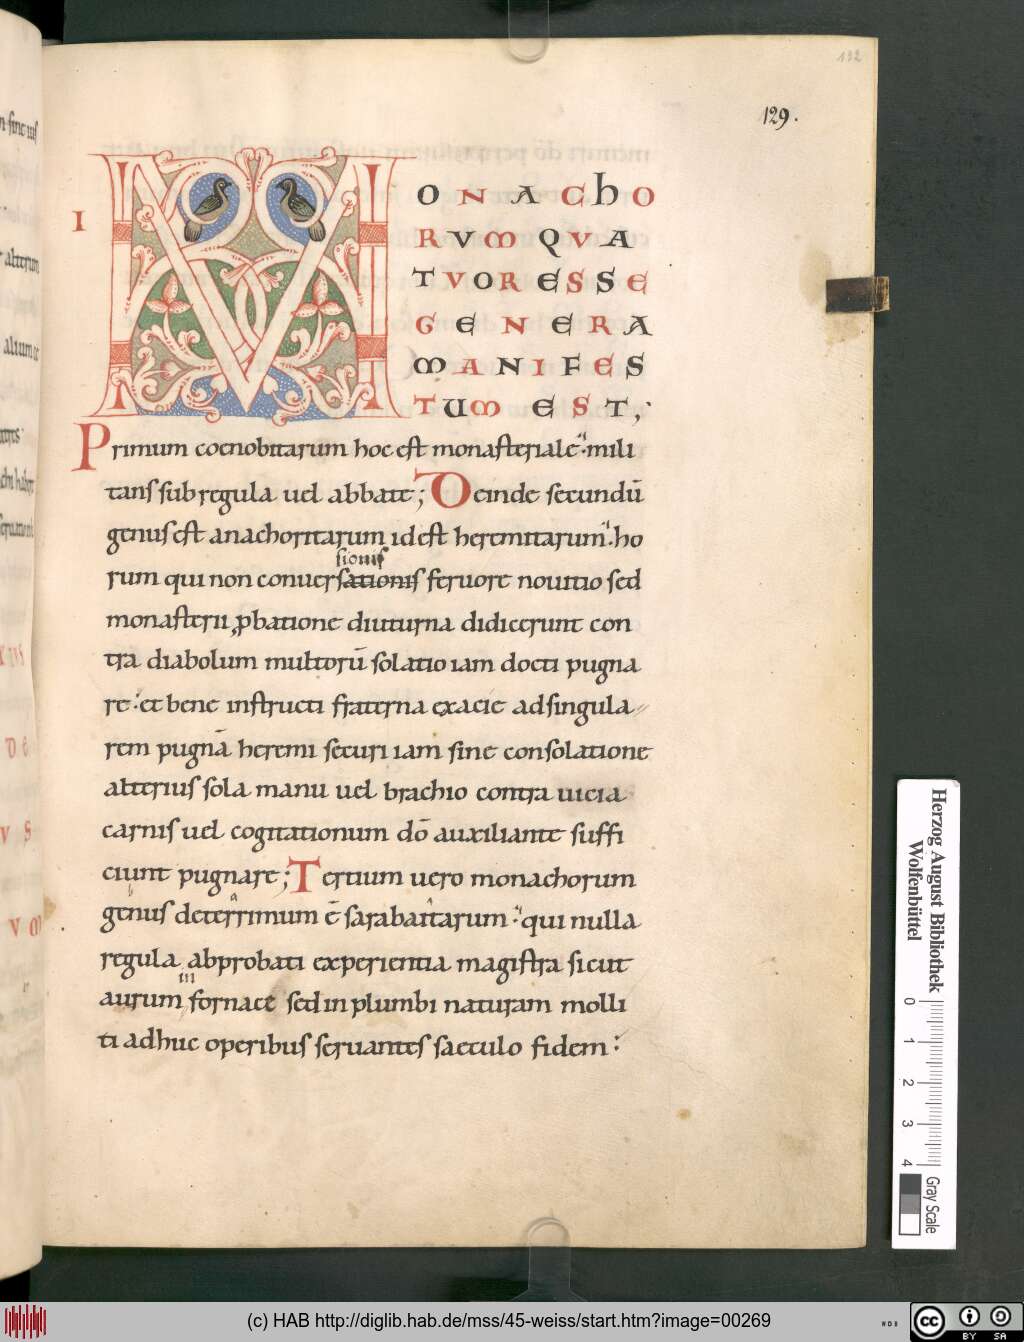 132
129.
I
MONACHO
RVM QVA
TVOR ESSE
GENERA
MANIFES
TUM EST;
Primum coenobitarum hoc est monasteriale· mili
tans sub regula uel abbate; Deinde secundū
genus est anachoritarum id est heremitarum· ho
sionis
rum qui non conuersationis feruore nouitio sed
monasterii ꝓbatione diuturna didicerunt con
tra diabolum multorū solatio iam docti pugna
re· et bene instructi fraterna exacie ad singula
rem pugnā heremi securi iam sine consolatione
alterius sola manu uel brachio contra uicia
carnis uel cogitationum dō auxiliante suffi
ciunt pugnare; Tertium uero monachorum
genus deterrimum ē sarabaitarum· qui nulla
regula abprobati experientia magistra sicut
in
aurum fornace sed in plumbi naturam molli
ti adhuc operibus seruantes saeculo fidem:
Herzog August Bibliothek
Wolfenbüttel
0 1 2 3 4
Gray Scale
(c) HAB http://diglib.hab.de/mss/45-weiss/start.htm?image=00269
cc BY SA